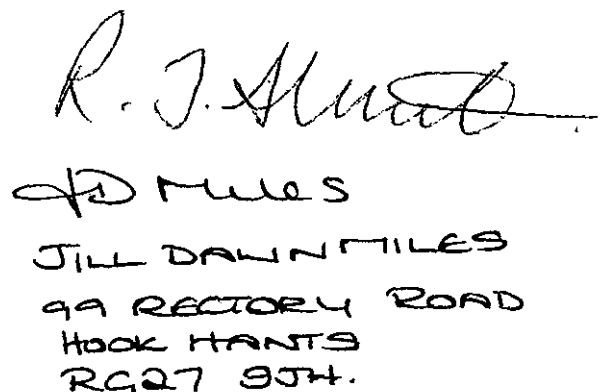 R. J.
JD Miles
JILL DAWN MILES
99 RECTORY ROAD
HOOK HANTS
RG27 9JH.